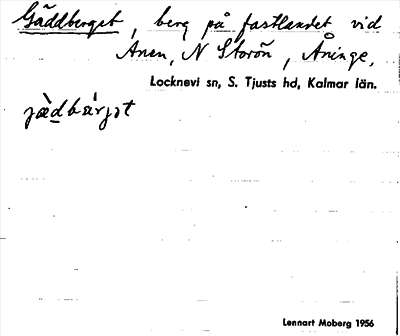 Gäddberget, berg på fastlandet vid
Anen, N Storön, Åninge,
Locknevi sn, S. Tjusts hd, Kalmar län.
jæ̀dbæŕjət
Lennart Moberg 1956